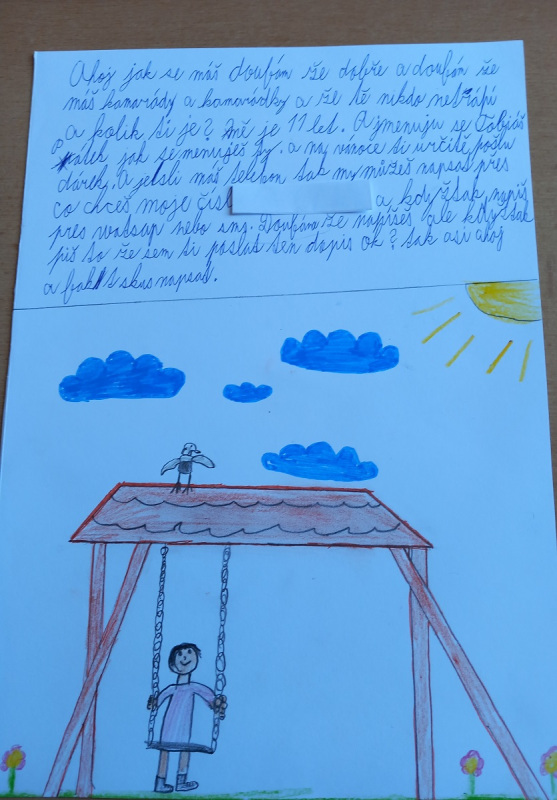 Ahoj jak se máš doufám že dobře a doufán že
máš kamarády a kamarádky a že tě nikdo netrápí
a kolik ti je? mě je 11 let. A jmenuju se Tobyáš
jak se menuješ ty. a na vánoce ti určitě pošlu
dárek. A jetsli máš telefon tak my můžeš napsat přes
co chceš moje čísl a kdyžtak napiš
přes watsap nebo sms. Doufám že napíšeš ale kdyžtak
piš to že sem ti poslal ten dopis ok? tak asi ahoj
a fakt skus napsat.